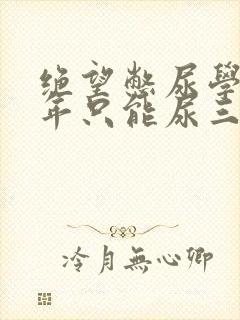 绝望憋尿學
年只能尿三
冷月無心卿